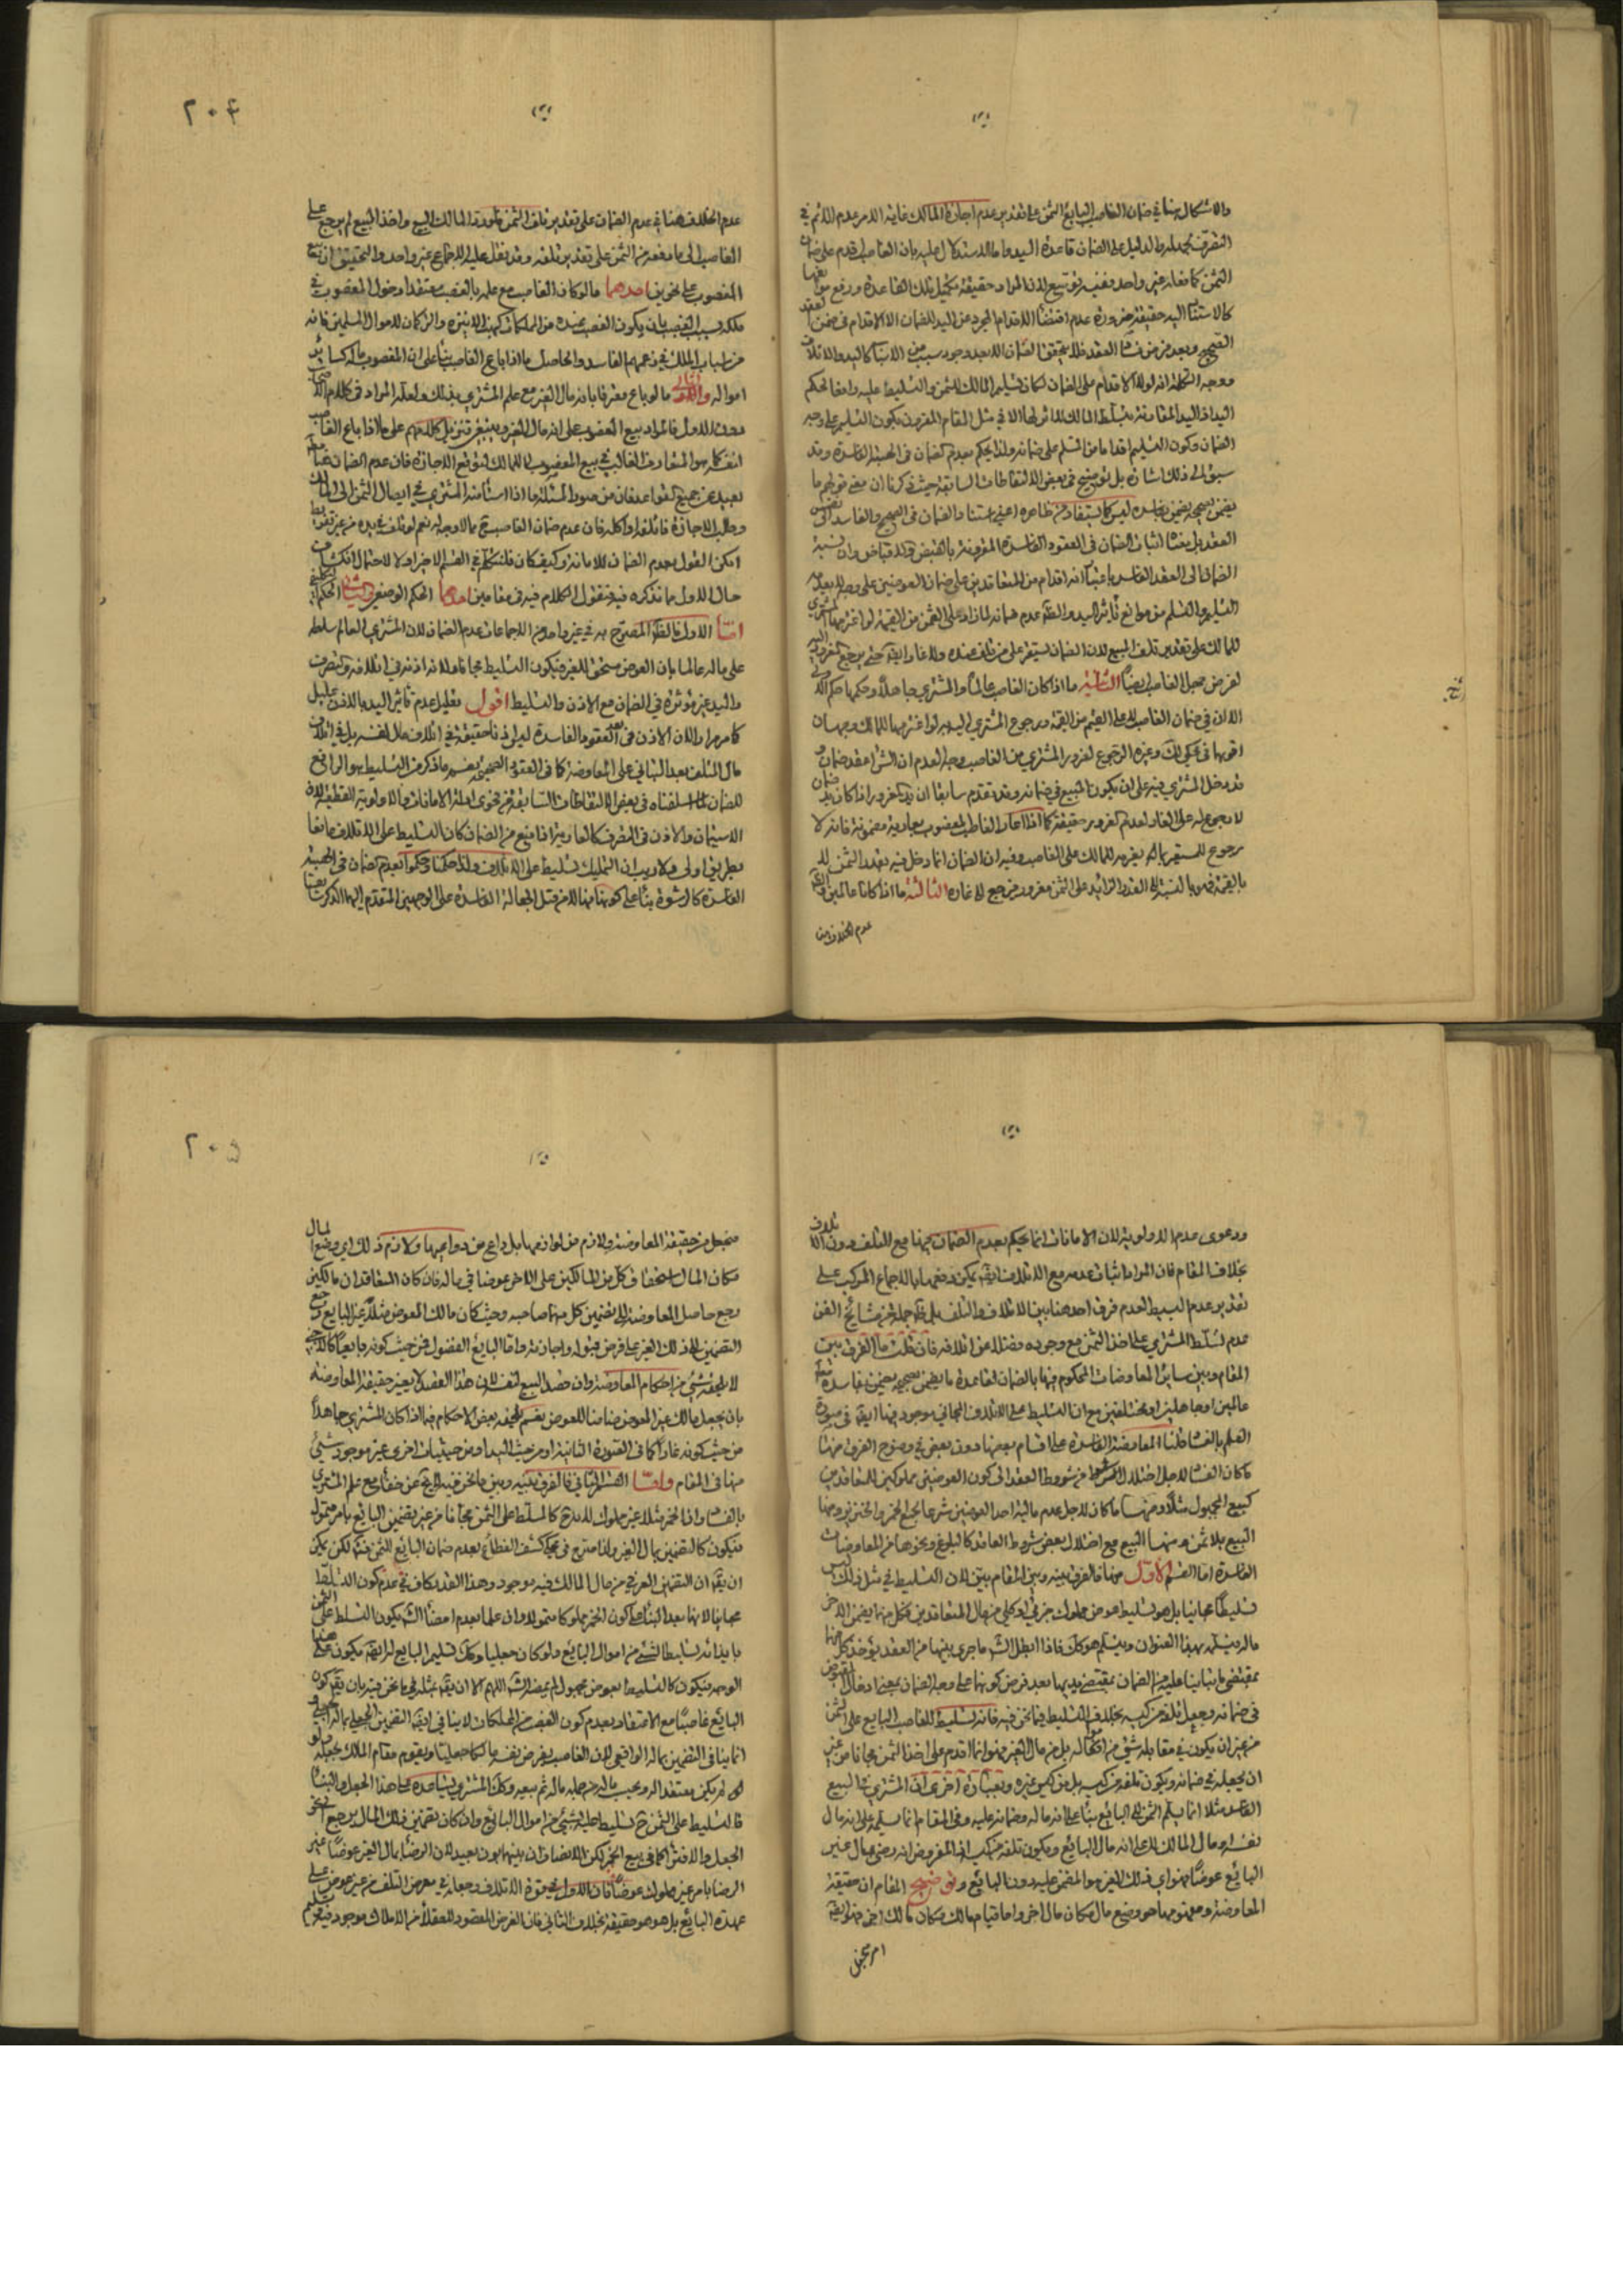 والاشكال هنا في ضمان الغاصب البايع الثمن على تقدير عدم اجازة المالك غاية الامر عدم الاثم في
التصرف بجعله والدليل على الضمان قاعدة اليد واما الاستدلال عليه بان الغاصب اقدم على ضمان
الثمن كما فعله غير واحد ففيه
كالاستثنا اليه حقيقة ضرورة عدم اقتضاء الاقدام المجرد عن اليد للضمان الا الاقدام في ضمن العقد
الصحيح وبعد فرض فساد العقد فلا يتحقق الضمان الا بعد وجود سبب من الاسباب كاليد والاتلاف
ووجه التكلم انه لولا الاقدام على الضمان لكان تسليم المالك للثمن والتسليط عليه رافعا لحكم
اليد اذ اليد المقارنة بتسلط المالك لا اثر لها الا في مثل المقام المقرون بكون التسليم على وجه
الضمان وكون التسليم اقداما من المتسلم على ضمانه ولذا يحكم بعدم الضمان في الهبة الفاسدة وقد
سبق الى ذلك اشارة بل توضيح في بعض الالتقاطات السابقة حيث ذكرنا ان معنى قولهم ما
يضمن بصحيحه يضمن بفاسده ليس كما يستفاد من ظاهره اعني استناد الضمان في الصحيح والفاسد الى نفس
العقد بل منشأ اثبات الضمان في العقود الفاسدة المقرونة بالقبض والاقباض وان نسبة
الضمان الى العقد الفاسد باعتبار انه اقدام من المتعاقدين على ضمان العوضين على وجه لا يعد
التسليم والتسلم من موانع تأثير اليد والظ عدم ضمانه لما زاد على الثمن من القيمة لو اغرمها المشتري
للمالك على تقدير تلف المبيع لان الضمان يستقر على من تلف عنده ولا غار هنا حتى يرجع المغرور اليه
لفرض جهل الغاصب ايضا الثانية ما اذا كان الغاصب عالما والمشتري جاهلا وحكمها حكم الاولى
الا ان في ضمان الغاصب لاعلى القيم من القيمة ورجوع المشتري اليه بها لو اغرمها للمالك وجهان
اقربهما في محكي لك وغيره الرجوع لغرور المشتري من الغاصب وجه العدم ان الشراء عقد ضمان
قد دخل المشتري فيه على ان يكون المبيع في ضمانه وقد تقدم سابقا ان يد المغرور اذا كان يد ضمان
لا رجوع له على الغار لعدم الغرور حقيقة كما اذا اعار الغاصب المغصوب بعارية مضمونة فانه لا
رجوع للمستعير بما يغرمه للمالك على الغاصب وفيه ان الضمان انما دخل فيه بقدر الثمن لا
بالقيمة فهو بالنسبة الى القدر الزايد على الثمن مغرور فيرجع الى غاره الثالثة ما اذا كانا عالمين والظ
عدم الخلاف هنا
٢٠۴
عدم الخلاف هنا في عدم الضمان على تقدير تلف الثمن فلو رد المالك البيع واخذ المبيع لم يرجع على
الغاصب الى ما دفعه من الثمن على تقدير تلفه وقد نقل عليه الاجماع غير واحد والتحقيق ان بيع
المغصوب على نحوين احدهما ما لو كان الغاصب مع علمه بالغصب معتقدا دخول المغصوب في
ملكه بسبب الغصب بان يكون الغصب عنده من المملكات كهذه الازمنة والزمان لاموال المسلمين فانه
من اسباب الملك في زعمهم الفاسد والحاصل ما اذا باع الغاصب بناء على ان المغصوب ماله كساير
امواله والثاني ما لو باع معترفا بانه مال الغير مع علم المشتري بذلك ولعله المراد في كلام الاصحاب
دون الاول فالمراد بيع المغصوب على انه مال الغير وينبغي تنزيل كلامهم على ما اذا باع الغاصب
لنفسه كما هو المتعارف الغالب في بيع المغصوب لا للمالك لتوقع الاجازة فان عدم الضمان هنا
بعيد عن جميع القواعد فان من صور المسئلة ما اذا استأمنه المشتري في ايصال الثمن الى المالك
وطلب الاجازة فاتلفه او اكله فان عدم ضمان الغاصب ح مما لا وجه له نعم لو تلف في يده من غير تفريط
امكن القول بعدم الضمان للامانة وكيف كان فلنتكلم في القسم الاخير اولا لاحتمال انكشاف
حال الاول مما نذكره فيه فنقول الكلام فيه في مقامين احدهما الحكم الوضعي والثاني الحكم التكليفي
امّا الاول فالظ المصرح به في غير واحد من الاجماعات عدم الضمان لان المشتري العالم سلطه
على ماله عالما بان العوض مستحق للغير فيكون التسليط مجانا ولا
واليد غير مؤثرة في الضمان مع الاذن والتسليط اقول تعليل عدم تأثير اليد بالاذن عليل
كما مر مرارا لان الاذن في العقود الفاسدة ليس اذنا حقيقة في اتلاف مال نفسه بل في اتلاف
مال المتلف بعد التباني على المعاوضة كما في العقود الصحيحة نعم ما ذكر من التسليط هو الرافع
للضمان لما اسلفناه في بعض الالتقاطات السابقة من فحوى ادلة الامانات والاولوية القطعية لان
الاستيمان والاذن في التصرف كالعارية اذا منع من الضمان كان التسليط على الاتلاف مانعا
بطريق اولى ولا ريب ان التمليك تسليط على الاتلاف ولذا حكمنا وحكموا بعدم الضمان في الهبة
الفاسدة كالرشوة بناء على كونها منها لا من قبل الجعالة الفاسدة على الوجهين المتقدم اليهما الذكر سابقا
ودعوى عدم الاولوية لان الامانات انما يحكم بعدم الضمان بها مع التلف دون الاتلاف
بخلاف المقام فان المراد اثبات عدمه مع الاتلاف ايضا يمكن دفعها بالاجماع المركب على
تقدير عدم البسيط لعدم فرق احد هنا بين الاتلاف والتلف بل ظ جملة من مشايخ الفن
عدم تسلط المشتري على اخذ الثمن مع وجوده فضلا عن اتلافه فان قلت ما الفرق بين
المقام وبين ساير المعاوضات المحكوم فيها بالضمان لقاعدة ما يضمن بصحيحه يضمن بفاسده
عالمين او جاهلين او مختلفين مع ان التسليط على الاتلاف المجاني موجود فيها ايضا في صورة
العلم بالفساد قلنا المعاوضة الفاسدة على اقسام بعضها دون بعض في وضوح الفرق منها
ما كان الفساد لاجل اختلال شرط من شروط العقد الى كون العوضين مملوكين للمتعاقدين
كبيع المجهول مثلا ومنها ما كان لاجل عدم مالية احد العوضين شرعا كبيع الخمر والخنزير ومنها
البيع بلا ثمن ومنها البيع مع اختلال بعض شروط العاقد كالبلوغ ونحوها من المعاوضات
الفاسدة امّا القسم الاول منها فالفرق بينه وبين المقام بين لان التسليط في مثل ذلك ليس
تسليطا مجانيا بل هو تسليط بعوض مملوك جزئي او كلي من مال المتعاقدين فكل منهما يضمن الاخر
ماله ويسلمه بهذا العنوان ويتسلم هو كك فاذا ابطل الش ما جرى بينهما من العقد يؤخذ كل منهما
بمقتضى ما بنيا عليه من الضمان بمقتضى يديهما بعد فرض كونها على وجه الضمان بمعنى ادخال العوض
في ضمانه وجعل تلفه من كيسه بخلاف التسليط فيما نحن فيه فانه تسليط للغاصب البايع على الثمن
من غير ان يكون في مقابله شيء من امواله بل من مال الغير فهو انما اقدم على اخذ الثمن مجانا من غير
ان يجعله في ضمانه ويكون تلفه من كيسه بل من كيس غيره وبعبارة اخرى ان المشتري في البيع
الفاسد مثلا انما يسلم الثمن الى البايع بناء على انه ماله وضمانه عليه وفي المقام انما يسلمه على انه مال
نفسه او مال المالك لا على انه مال البايع ويكون تلفه من كيسه اذ المفروض انه رضي بمال غير
البايع عوضا فهو اي ذلك الغير هو المضمن عليه دون البايع وتوضيح المقام ان حقيقة
المعاوضة ومفهومها هو وضع مال مكان مال اخر واما قيام مالك مكان مالك اخر فهو ايضا
امر مجعل
٢٠۵
منجعل من حقيقة المعاوضة ولازم من لوازمها بل داع من دواعيها ولازم ذلك اي وضع المال
مكان المال استحقاق كل من المالكين على الاخر عوضا في ماله فان كان المتعاقدان مالكين
رجع حاصل المعاوضة الى تضمين كل منهما صاحبه وحيث كان مالك المعوض مثلا غير البايع رجع
التضمين الى ذلك الغير على فرض قبوله واجازته واما البايع الفضولي فمن حيث كونه بايعا كالاجنبي
لا يلحقه شيء من احكام المعاوضة وان قصد البيع لنفسه لان هذا القصد لا يغير حقيقة المعاوضة
بان يجعل مالك غير المعوض ضامنا للعوض نعم يلحقه بعض الاحكام فيما اذا كان المشتري جاهلا
من حيث كونه غارا كما في الصورة الثانية او من حيث اليد او من حيثيات اخرى غير موجود شيء
منها في المقام وامّا القسم الثاني فالفرق بينه وبين ما نحن فيه لا يخ عن خفاء مع علم المشتري
بالفساد وان الخمر مثلا غير مملوك لاندراج كالمسلط على الثمن مجانا من غير تضمين البايع بامر متمول
فيكون كالتضمين بمال الغير ولذا صرح في محكي كشف الغطاء بعدم ضمان البايع الثمن فيه لكن يمكن
ان يقال ان التضمين العرفي من مال المالك فيه موجود وهذا القدر كاف في عدم كون التسليط
مجانيا لانهما بعد البناء على كون الخمر مملوكا متمولا وان علما بعدم امضاء الش يكون التسلط على الثمن
بازائه تسليطا لشيء من اموال البايع ولو كان جعليا وكك تسليم البايع له ايضا يكون على هذا
الوجه فيكون كالتسليط بعوض مجهول لم يمضه الش اللهم الا ان يقال بمثله فيما نحن فيه بان يقال كون
البايع غاصبا مع الاعتقاد بعدم كون الغصب من المملكات لا ينافي ايضا التضمين الجعلي بماله اجعلي و
انما ينافي التضمين بماله الواقعي لان الغاصب يفرض نفسه مالكا جعليا ويقوم مقام المالك بجعله ولو
لم يكن معتقدا له ويحسب ماله من جملة ماله ثم يبيعه وكك المشتري يساعده على هذا الجعل والبناء
فالتسليط على الثمن ح تسليط عليه بشيء من اموال البايع وان كان تضمين ذلك المال يرجع الى نحو
الجعل والافتراء كما في بيع الخمر لكن الانصاف ان بينهما بون بعيد لان الرضا بمال الغير عوضا غير
الرضا بامر غير مملوك عوضا فان الاول في قوة الاتلاف وجعله في معرض التلف من غير عوض على
عهدة البايع بل هو هو حقيقة بخلاف الثاني فان الغرض المقصود للعقلاء من الاملاك موجود فيه